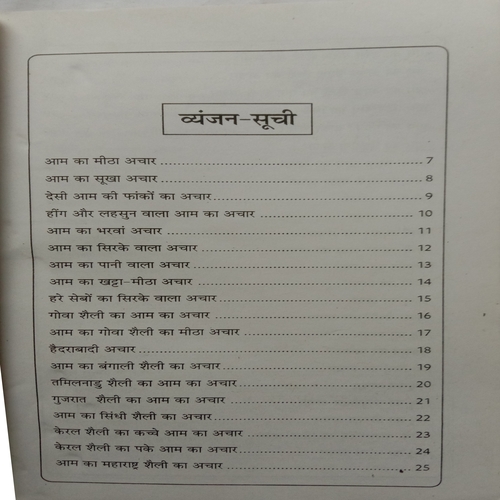 व्यंजन-सूची
आम का मीठा अचार ........................................................ 7
आम का सूखा अचार ........................................................ 8
देसी आम की फांकों का अचार ........................................... 9
हींग और लहसुन वाला आम का अचार ................................ 10
आम का भरवां अचार ..................................................... 11
आम का सिरके वाला अचार ............................................. 12
आम का पानी वाला अचार ............................................... 13
आम का खट्टा-मीठा अचार .............................................. 14
हरे सेबों का सिरके वाला अचार ........................................ 15
गोवा शैली का आम का अचार ......................................... 16
आम का गोवा शैली का मीठा अचार ................................... 17
हैदराबादी अचार .......................................................... 18
आम का बंगाली शैली का अचार ....................................... 19
तमिलनाडु शैली का आम का अचार ................................... 20
गुजरात शैली का आम का अचार ...................................... 21
आम का सिंधी शैली का अचार ......................................... 22
केरल शैली का कच्चे आम का अचार .................................. 23
केरल शैली का पके आम का अचार .................................... 24
आम का महाराष्ट्र शैली का अचार ...................................... 25